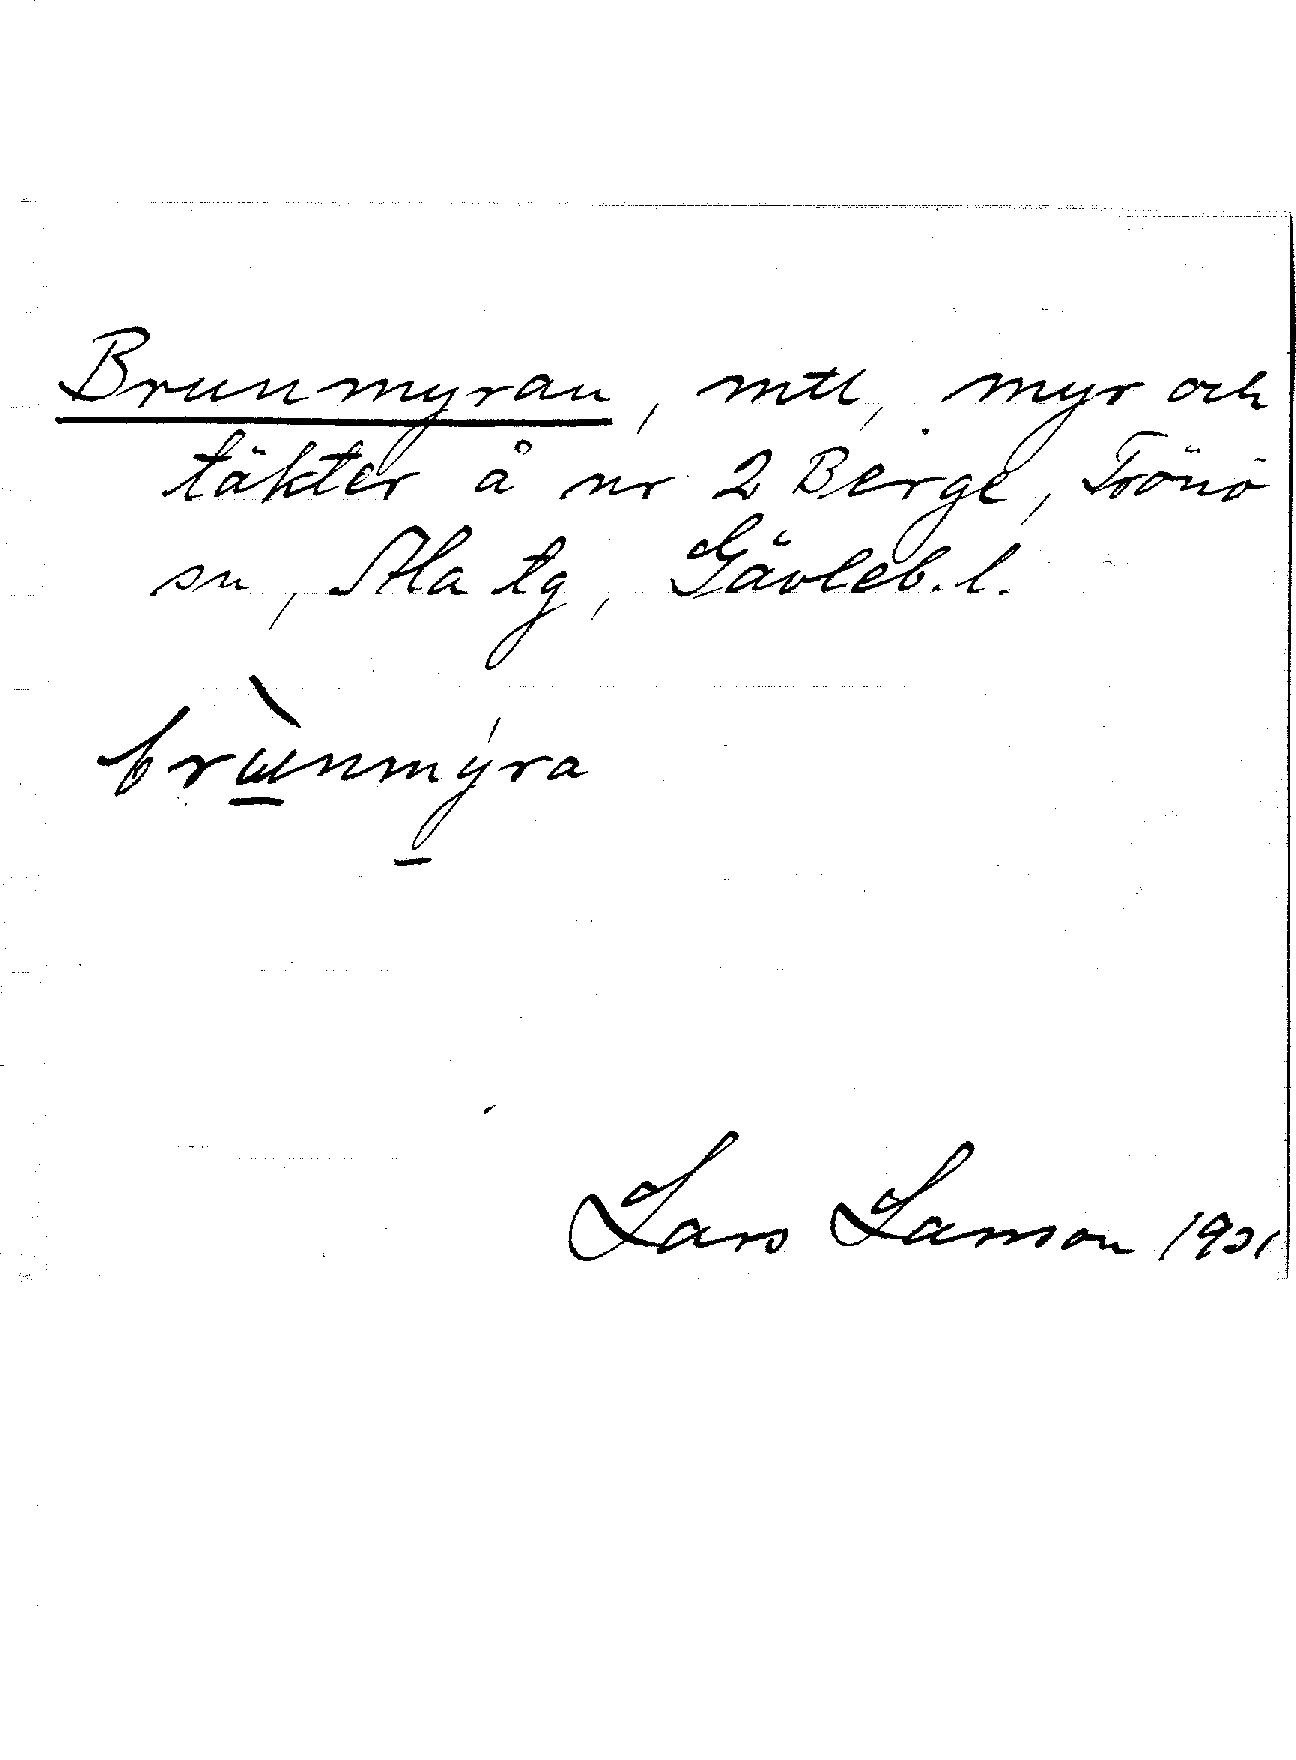 Brunmyran, mtl, myr och
täkter å nr 2 Berge, Trönö
sn, Ala tg, Gävleb. l.
brùnmýra
Lars Larsson 1931